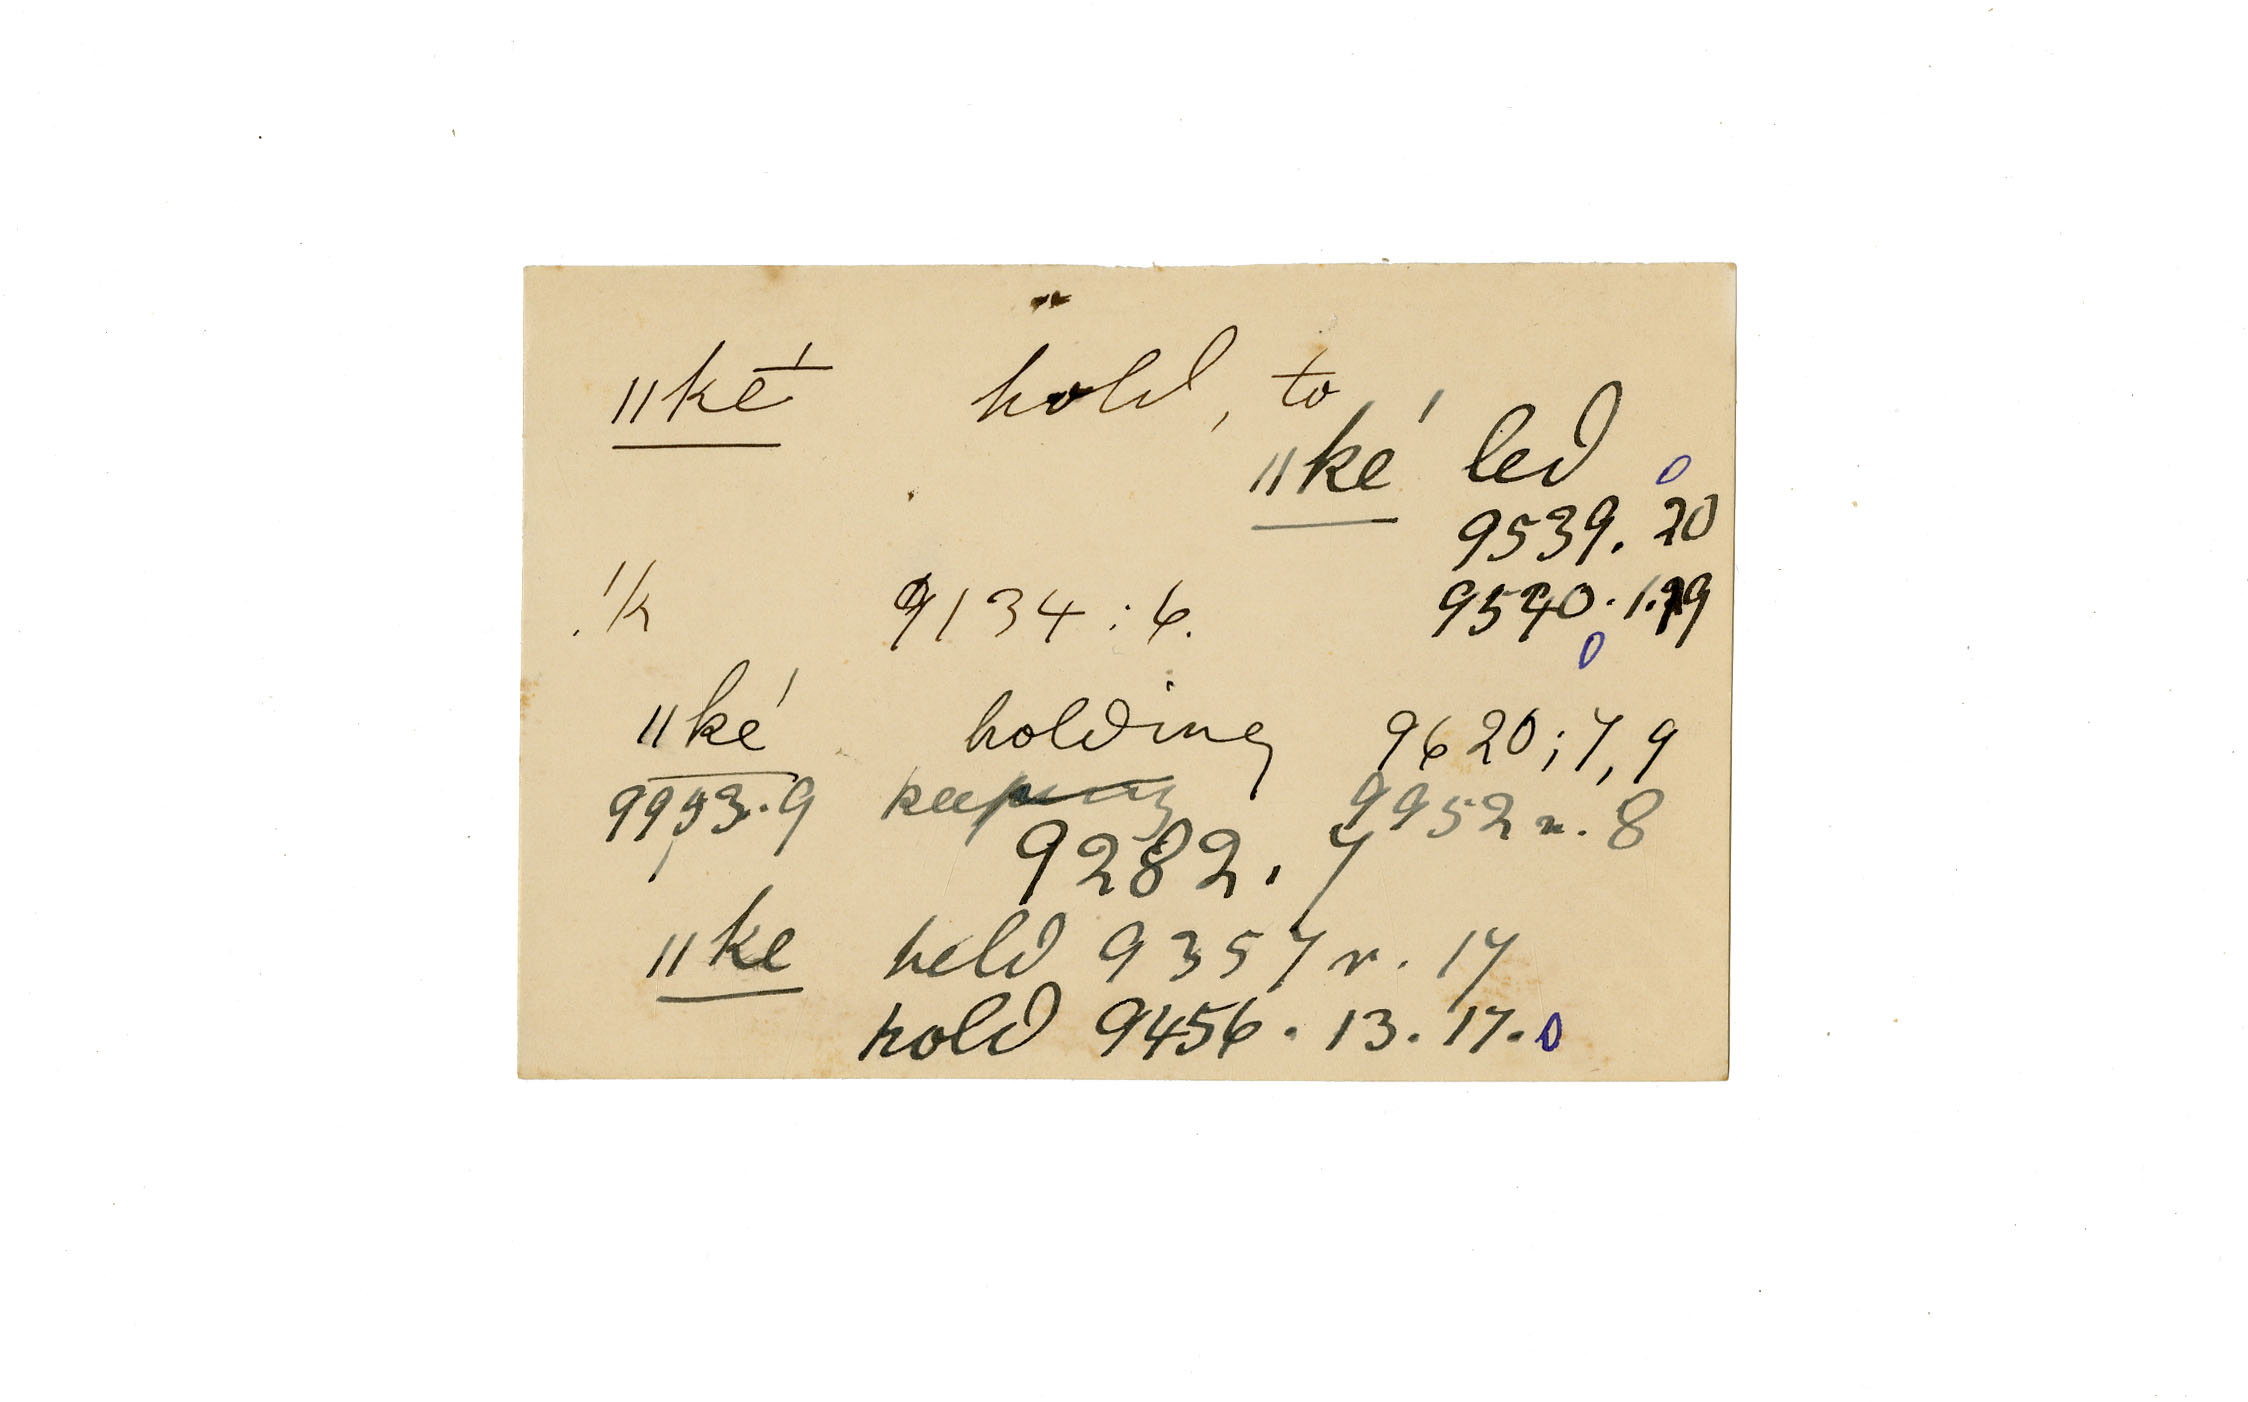 ǁké̱ hold, to
ǁké led
9539. 20
!k 9134:6. 9540. 1.19
ǁké holding 9620; 7, 9
9953.9 keeping 9952 r. 8
9282. 7
ǁke held 9357 r. 17
hold 9456. 13. 17.